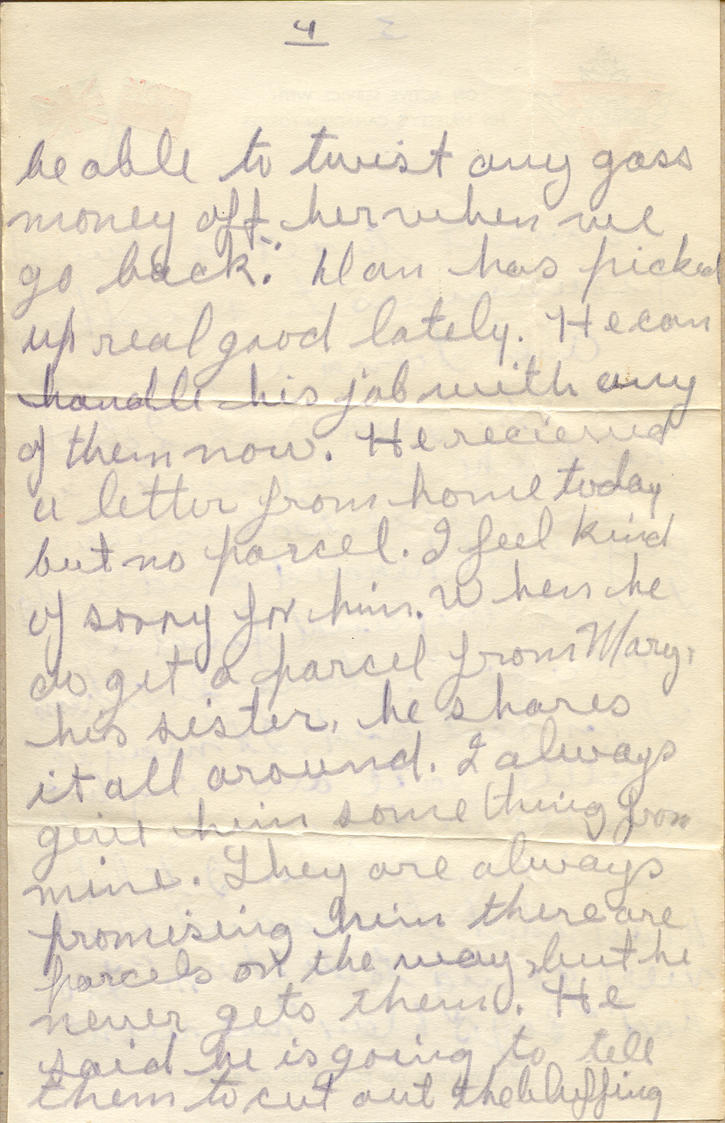 4
be able to twist any gass
money off her when we
go back." Dan has picked
up real good lately. He can
handle his job with any
of them now. He recieved
a letter from home today
but no parcel. I feel kind
of sorry for him. When he
do get a parcel from Mary,
his sister, he shares
it all around. I always
give him something from
mine. They are always
promising him there are
parcels on the way, but he
never gets them. He
said he is going to tell
them to cut out the bluffing